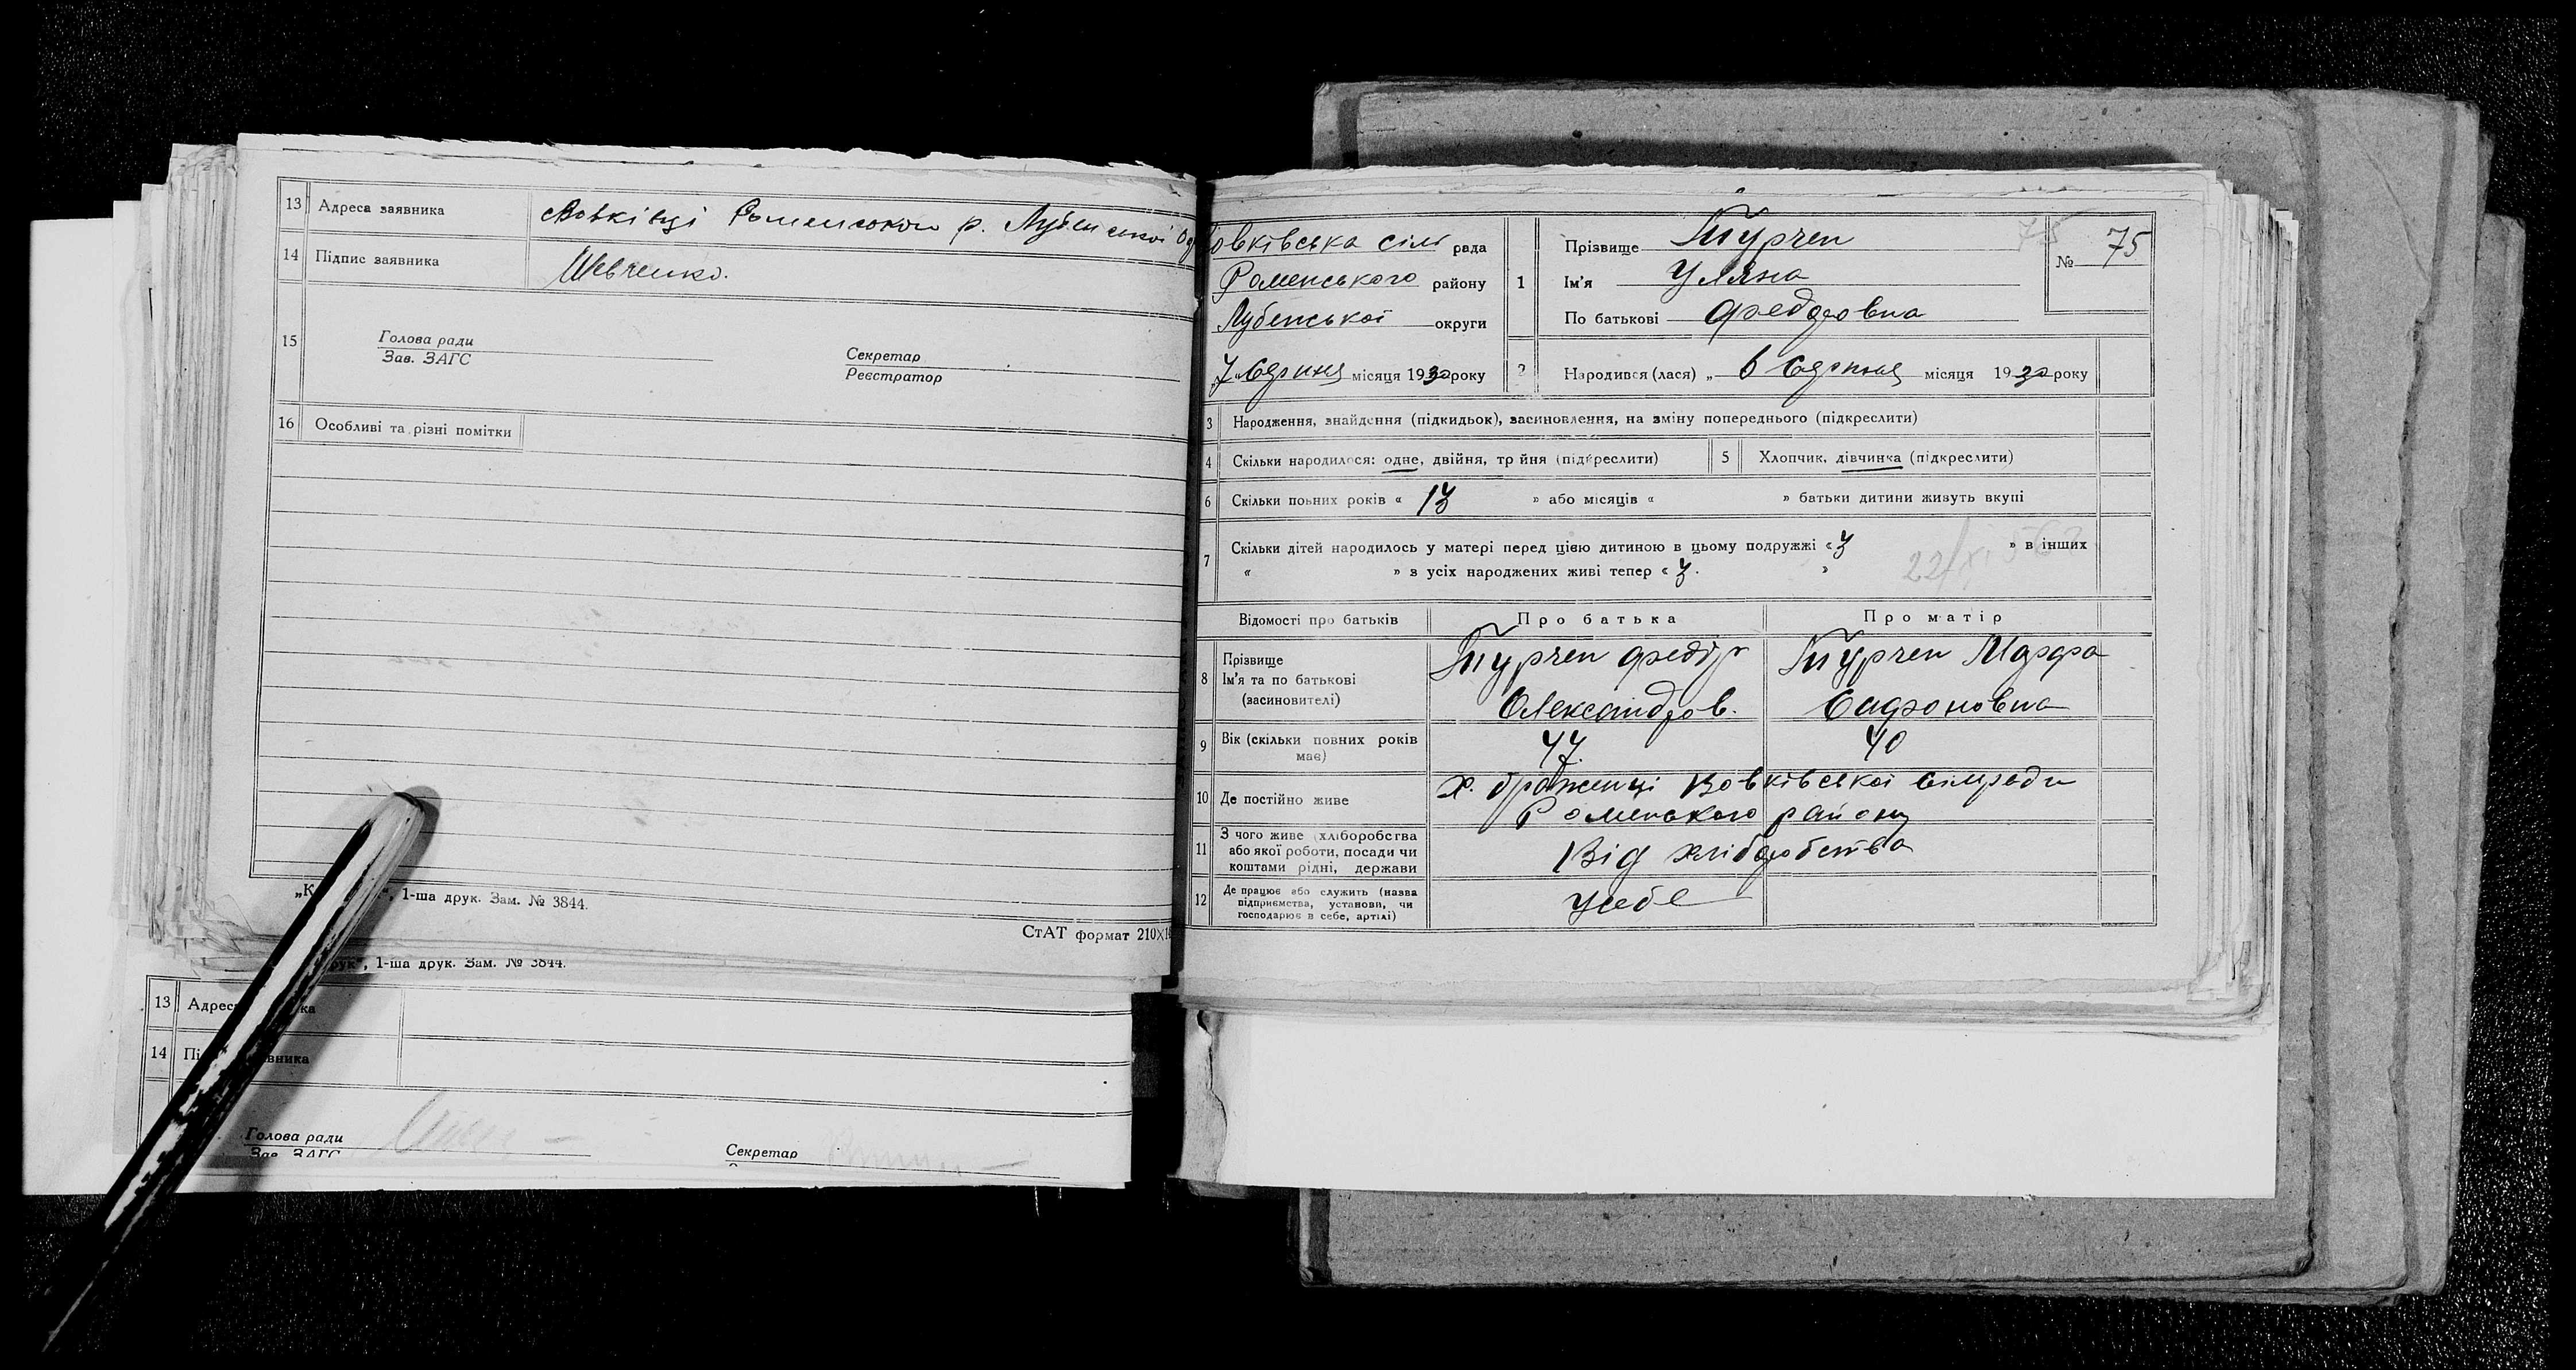 13 Адреса заявника с. Вовківці Роменського р. Лубенської
14 Підпис заявника Шевченко.
15 Голова ради
Зав. ЗАГС
Секретар
Реєстратор
16 Особливі та різні помітки
1-ша друк. Зам. № 3844.
СтАТ формат 210×
1-ша друк. Зам. № 3844.
13
14
Голова ради
Зав. ЗАГС
Секретар
овківська сіль рада
Роменського району
Лубенської округи
„7" Серпня місяця 1930 року
1 Прізвище Турчен
Ім'я Уляна
По батькові Федоровна
75
№ 75
2 Народився (лася) „ 6 Серпня місяця 1930 року
3 Народження, знайдення (підкидьок), засиновлення, на зміну попереднього (підкреслити)
4 Скільки народилося: одне, двійня, тр йня (підкреслити)
5 Хлопчик, дівчинка (підкреслити)
6 Скільки повних років « 13 » або місяців « » батьки дитини живуть вкупі
7 Скільки дітей народилось у матері перед цією дитиною в цьому подружжі « 3 » в інших
« » з усіх народжених живі тепер « 3. »
Відомості про батьків Про батька Про матір
8 Прізвище
Ім'я та по батькові
(засиновителі)
Турчен Федір
Олександров.
Турчен Марфа
Сафоновна
9 Вік (скільки повних років
має)
47.
40
10 Де постійно живе
Вовківської сільради
Роменського району
11 З чого живе (хліборобства
або якої роботи, посади чи
коштами рідні, держави
Від хліборобства
12 Де працює або служить (назва
підприємства, установи, чи
господарює в себе, артілі)
У себе